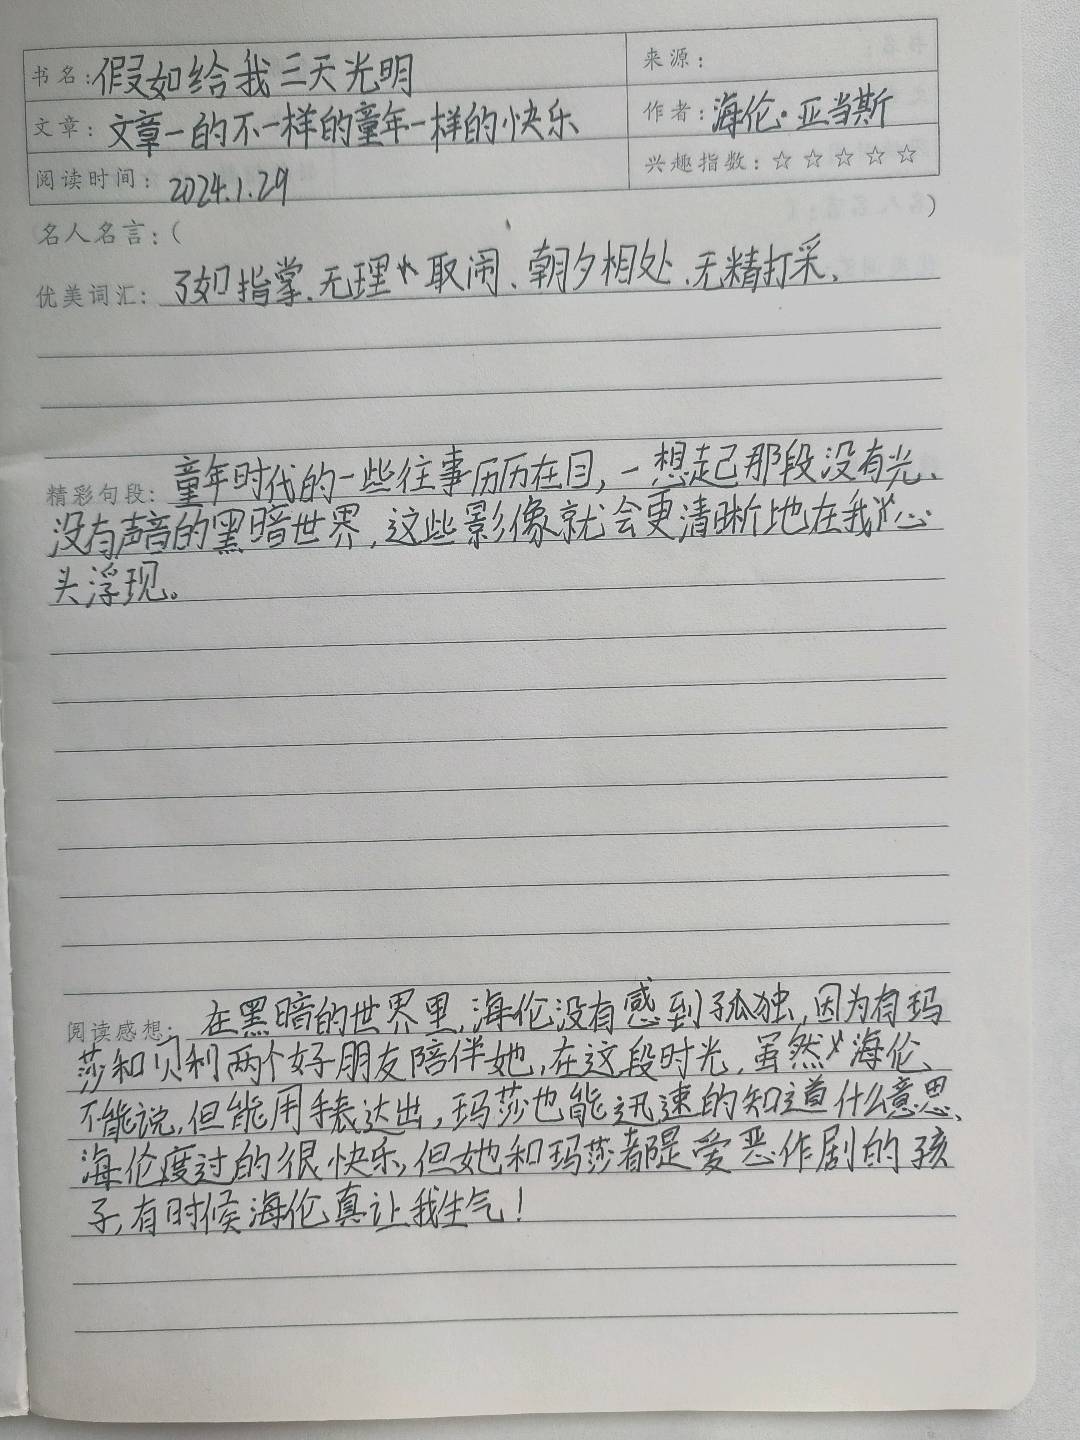 书名：假如给我三天光明
来源：
文章：文章一的不一样的童年一样的快乐
作者：海伦·亚当斯
阅读时间：2024.1.29
兴趣指数：☆☆☆☆☆
名人名言：（ ）
优美词汇：了如指掌、无理取闹、朝夕相处、无精打采、
精彩句段：童年时代的一些往事历历在目，一想起那段没有光、
没有声音的黑暗世界，这些影像就会更清晰地在我心
头浮现。
阅读感想：在黑暗的世界里，海伦没有感到孤独，因为有玛
莎和贝利两个好朋友陪伴她，在这段时光，虽然海伦、
不能说，但能用手表达出，玛莎也能迅速的知道什么意思、
海伦度过的很快乐，但她和玛莎都是爱恶作剧的孩
子，有时候海伦真让我生气！